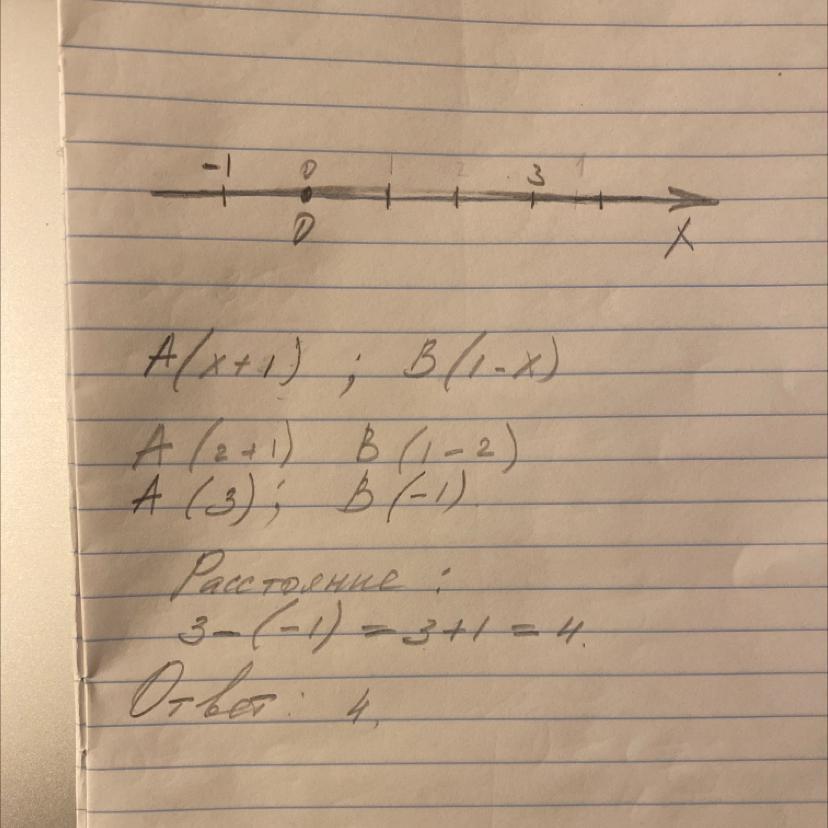 -1 0 1 2 3 1
0 X
A(x+1) ; B(1-x)
A(2+1) B(1-2)
A(3); B(-1).
Расстояние:
3-(-1)=3+1=4.
Ответ: 4.